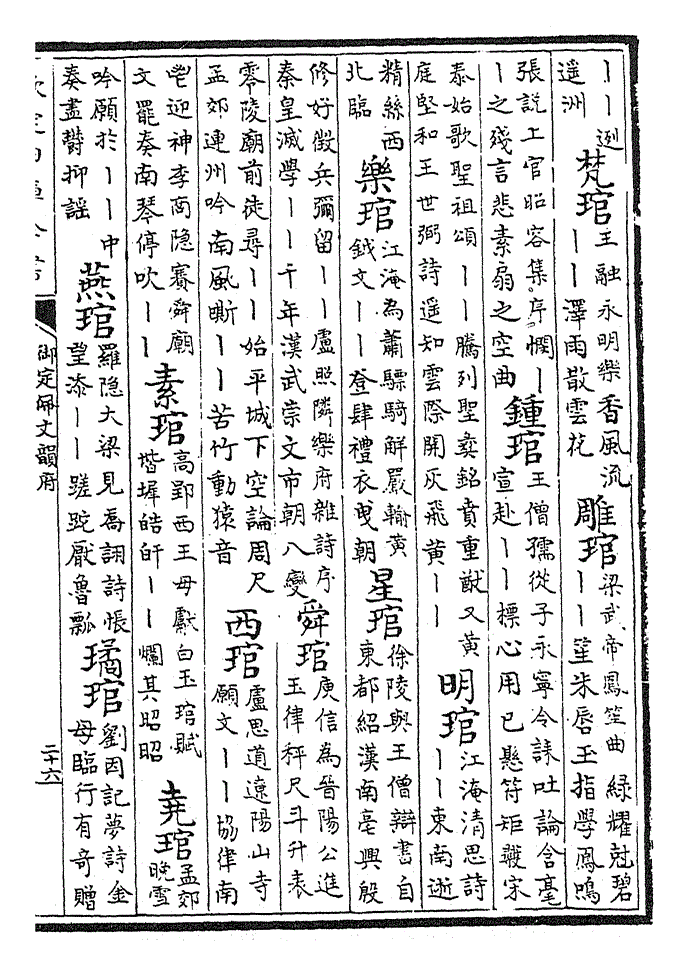 丨丨逈遥洲梵琯王融永明樂香風流丨丨澤雨散雲花雕琯梁武帝鳳笙曲綠耀尅碧丨丨笙朱唇玉指學鳳鳴
張說上官昭容集序憫丨丨之殘言悲素扇之空曲鍾琯王僧孺從子永寧令謙誄吐論含毫宣赴丨丨標心用已懸符矩䕶宋
泰始歌聖祖頌丨丨騰列聖彜銘賁重猷又黄庭堅和王世弼詩遥知雲際開灰飛黄丨丨明琯江淹清思詩丨丨東南逝
精絲西北臨樂琯江淹為蕭驃騎解嚴輸黄鉞文丨丨登肆禮衣曵朝星琯徐陵與王僧辯書自東都紹漢南亳興殷
修好徴兵彌留丨丨盧照隣樂府雜詩序秦皇滅學丨丨千年漢武崇文市朝八變舜琯庾信為晉陽公進玉律秤尺斗升表
零陵廟前徒尋丨丨始平城下空論周尺孟郊連州吟南風嘶丨丨苦竹動猿音西琯盧思道遼陽山寺願文丨丨協律南
迎神李商隐賽舜廟文罷奏南琴停吹丨丨素琯高郢西王母獻白玉琯賦揩墀皓皔丨丨爛其昭昭堯琯孟郊晚雪
吟願於丨丨中奏盡欝抑謡燕琯羅隐大梁見喬詡詩悵望漆丨丨蹉跎厭魯瓢璚琯劉因記夢詩金母臨行有奇贈
御定佩文韻府
二十六